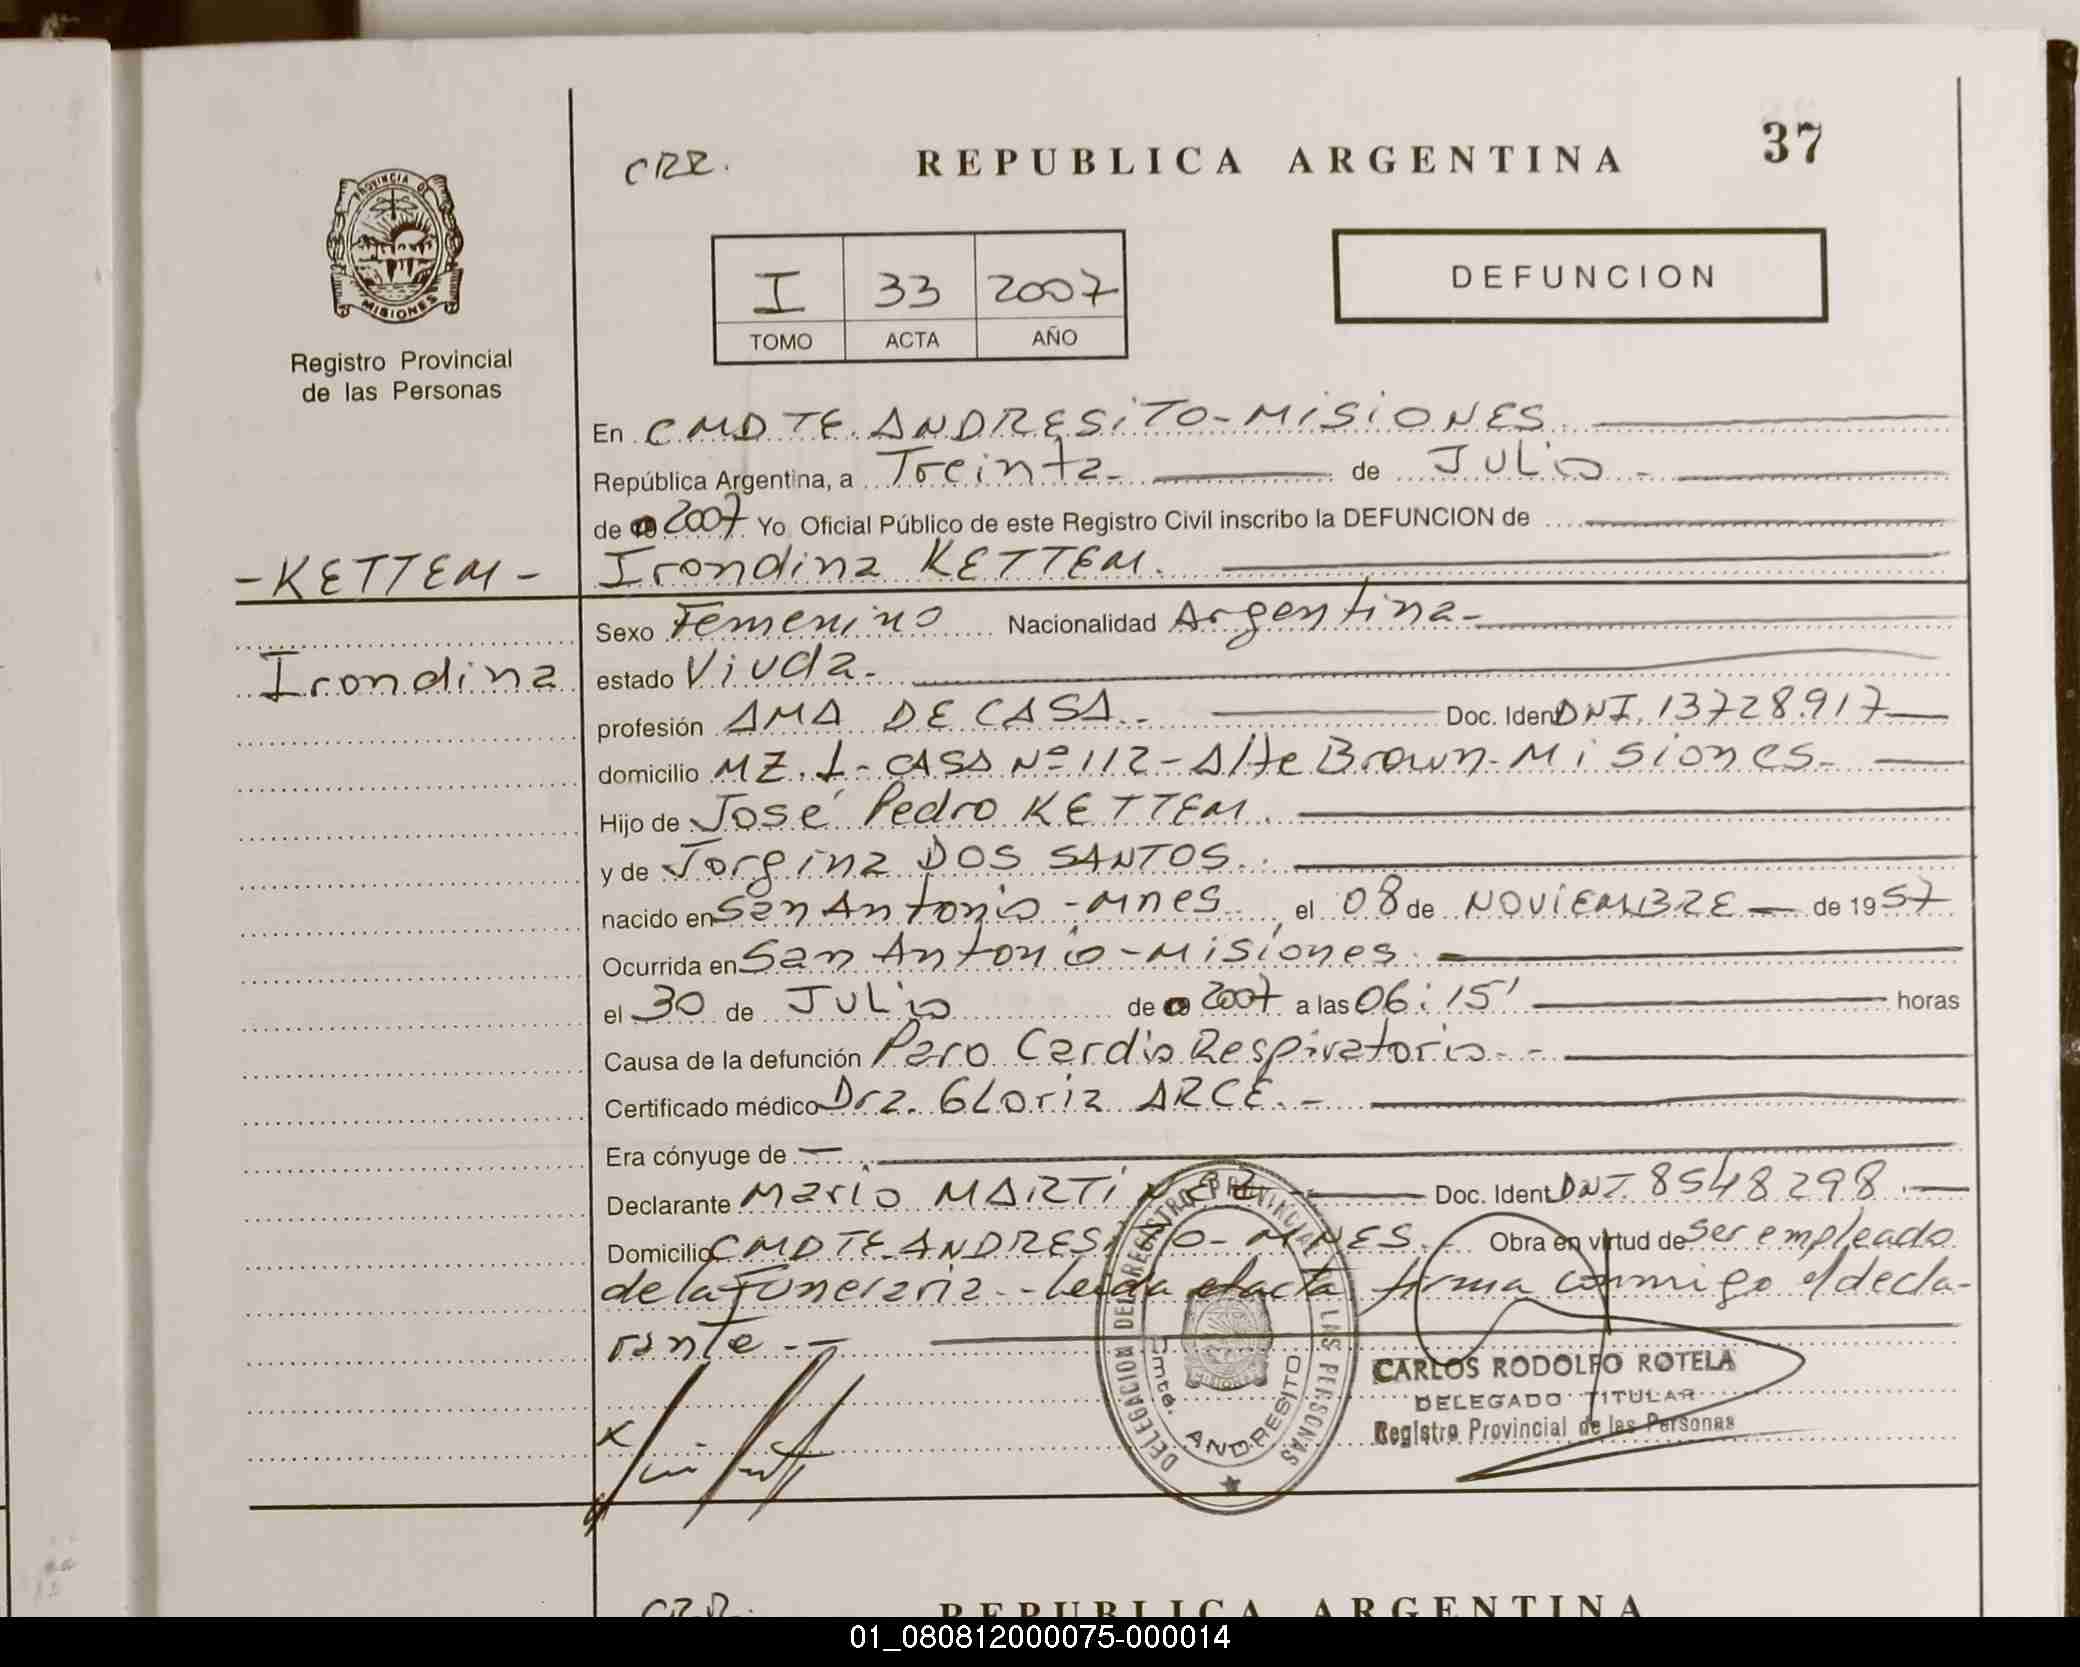 37
CRR. REPUBLICA ARGENTINA
PROVINCIA DE
MISIONES
Registro Provincial
de las Personas
I 33 2007
TOMO ACTA AÑO
DEFUNCION
En CMDTE. ANDRESiTO-MiSiONES.
República Argentina, a Treinta- de JULio -
de 2007 Yo Oficial Público de este Registro Civil inscribo la DEFUNCION de
-KETTEM- Irondina KETTEM.
Sexo Femenino Nacionalidad Argentina-
Irondina estado Viuda.
profesión AMA DE CASA.- Doc. Ident DNI. 13728.917
domicilio MZ.1- CASA Nº 112-Alte Brown-Misiones-
Hijo de José Pedro KETTEM.
y de Jorgina DOS SANTOS.
nacido en San Antonio -mnes , el 08 de NOViEMBRE de 1957
Ocurrida en San Antonio-Misiones.
el 30 de JULio de 2007 a las 06:15' horas
Causa de la defunción Paro Cardio Respiratorio.-
Certificado médico Dra. GLoria ARCE.-
Era cónyuge de —
Declarante Mario MARTiNEZ- Doc. Ident. DNI. 8548298.
Domicilio CMDTE ANDRESiTO- MNES. Obra en virtud de ser empleado
de la Funeraria.- Leida el acta firma conmigo el decla-
rante.-
x
DELEGACION DEL REGISTRO PROVINCIAL DE LAS PERSONAS
Cmte. ANDRESITO
MISIONES
CARLOS RODOLFO ROTELA
DELEGADO TITULAR
Registro Provincial de las Personas
CRR. REPUBLICA ARGENTINA
01_080812000075-000014